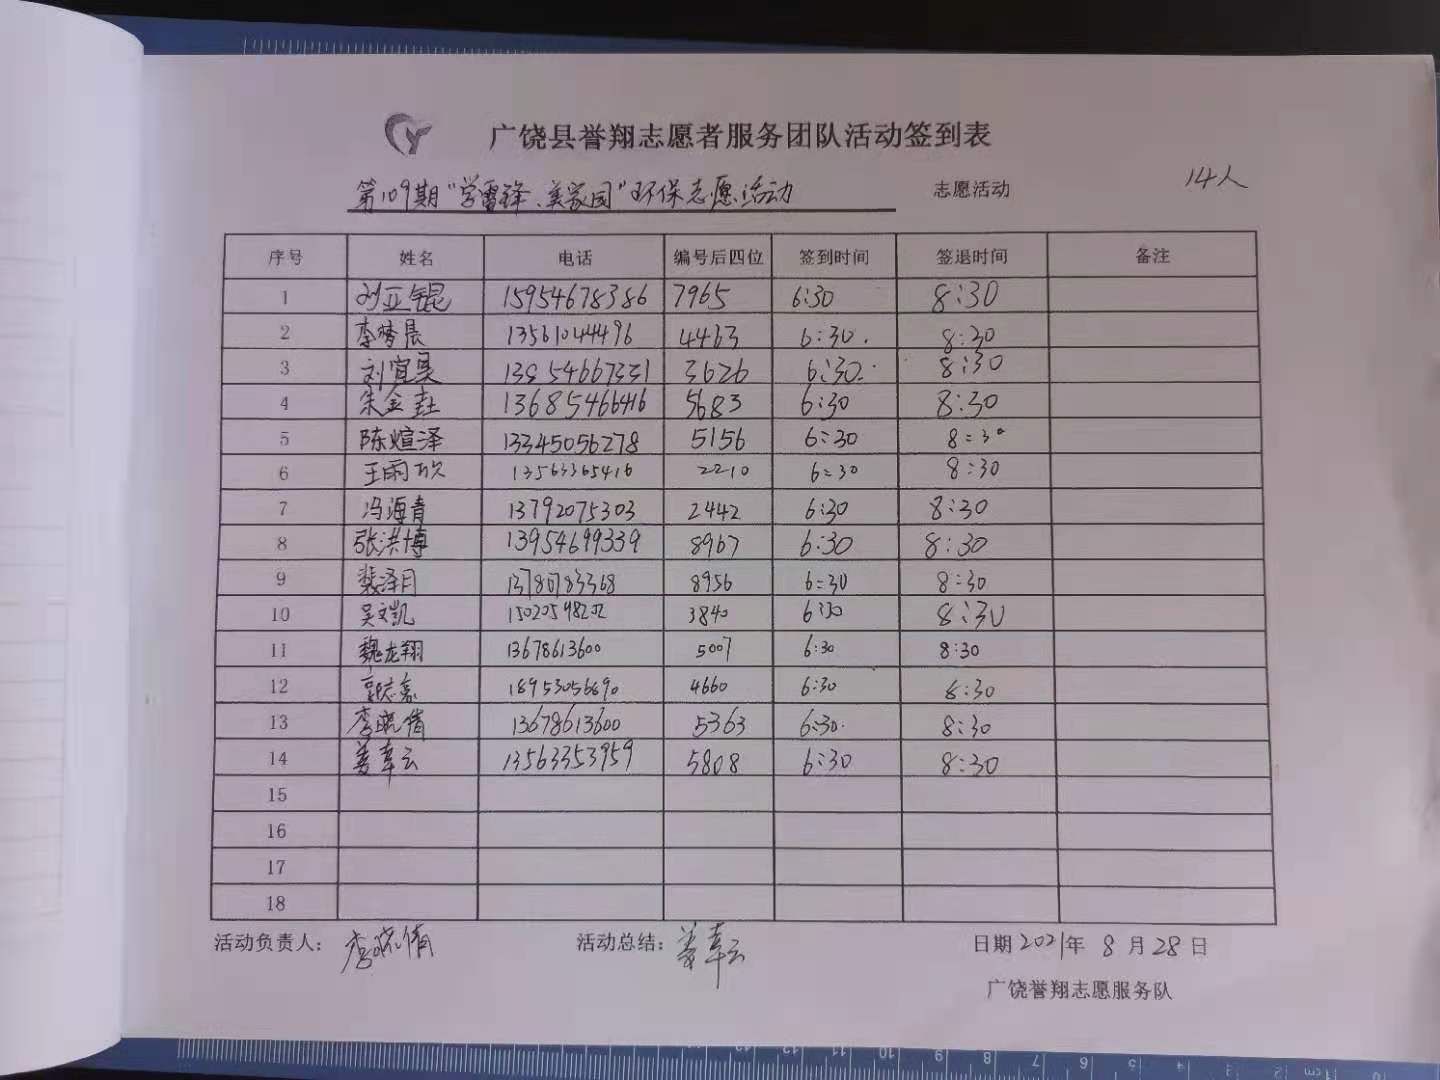 广饶县誉翔志愿者服务团队活动签到表
第109期“学雷锋、美家园”环保志愿活动 志愿活动 14人
序号 姓名 电话 编号后四位 签到时间 签退时间 备注
1 刘亚锟 15954678386 7965 6:30 8:30
2 李梦晨 13561044496 4463 6:30. 8:30
3 刘宜昊 13954667331 3626 6:30. 8:30
4 朱金 13685466416 5683 6:30 8:30
5 陈煊泽 13345056278 5156 6:30 8:30
6 王雨欣 13563365416 2210 6:30 8:30
7 冯海青 13792075303 2442 6:30 8:30
8 张洪博 13954699339 8967 6:30 8:30
9 裴泽月 8956 6:30 8:30
10 吴文凯 15020598202 3840 6:30 8:30
11 魏龙翔 13678613600 5007 6:30 8:30
12 郭志嘉 18953056690 4660 6:30 8:30
13 李晓倩 13678613600 5363 6:30. 8:30
14 姜幸云 13563353959 5808 6:30 8:30
15
16
17
18
活动负责人: 李晓倩 活动总结: 姜幸云 日期2021年 8 月28日
广饶誉翔志愿服务队